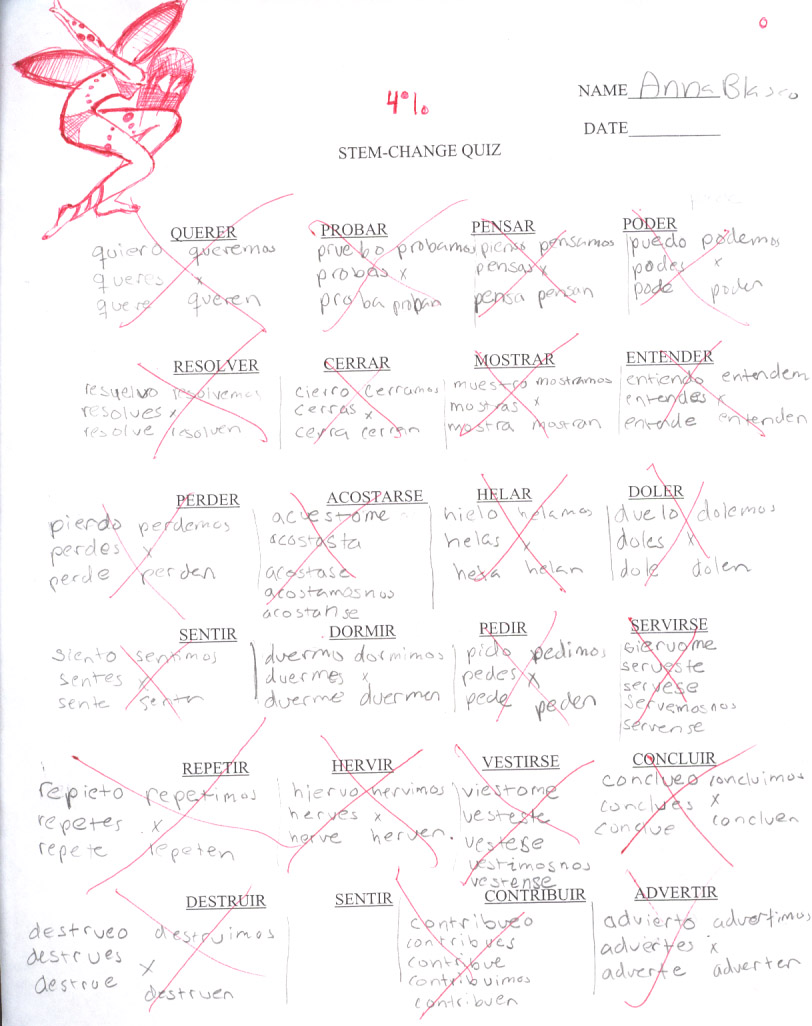 0
4%
NAME Anna Blasco
DATE
STEM-CHANGE QUIZ
QUERER PROBAR PENSAR PODER
quiero queremos pruebo probamos pienso pensamos puedo podemos
queres x probas x pensas x podes x
quere queren proba proban pensa pensan pode poden
RESOLVER CERRAR MOSTRAR ENTENDER
resuelvo resolvemos cierro cerramos muestro mostramos entiendo entendem
resolves x cerras x mostras x entendes x
resolve resolven cerra cerran mostra mostran entende entenden
PERDER ACOSTARSE HELAR DOLER
pierdo perdemos acuestome hielo helamos duelo dolemos
perdes x acostasta helas x doles x
perde perden acostase hela helan dole dolen
acostamosnos
acostanse
SENTIR DORMIR PEDIR SERVIRSE
siento sentimos duermo dormimos pido pedimos siervome
sentes x duermes x pedes x serveste
sente senten duerme duermen pede peden servese
servemosnos
servense
REPETIR HERVIR VESTIRSE CONCLUIR
repieto repetimos hiervo hervimos viestome conclueo concluimos
repetes x herves x vesteste conclues x
repete repeten herve herven. vestese conclue concluen
vestimosnos
vestense
DESTRUIR SENTIR CONTRIBUIR ADVERTIR
destrueo destruimos contribueo advierto advertimos
destrues x contribues advertes x
destrue destruen contribue adverte adverten
contribuimos
contribuen